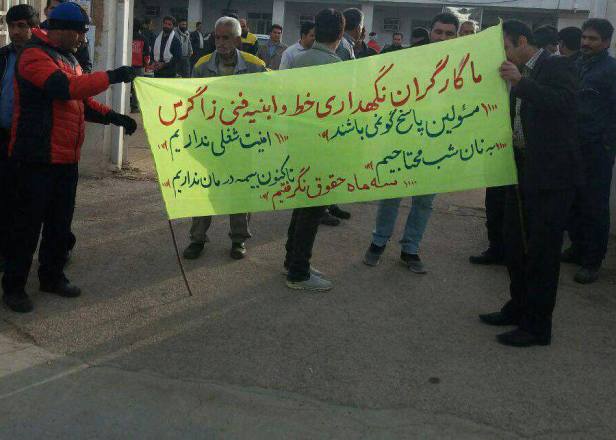 ما کارگران نگهداری خط و ابنیه فنی زاگرس
مسئولین پاسخ گو نمی باشند
امنیت شغلی نداریم
به نان شب محتاجیم
تاکنون بیمه درمان نداریم
سه ماه حقوق نگرفتیم